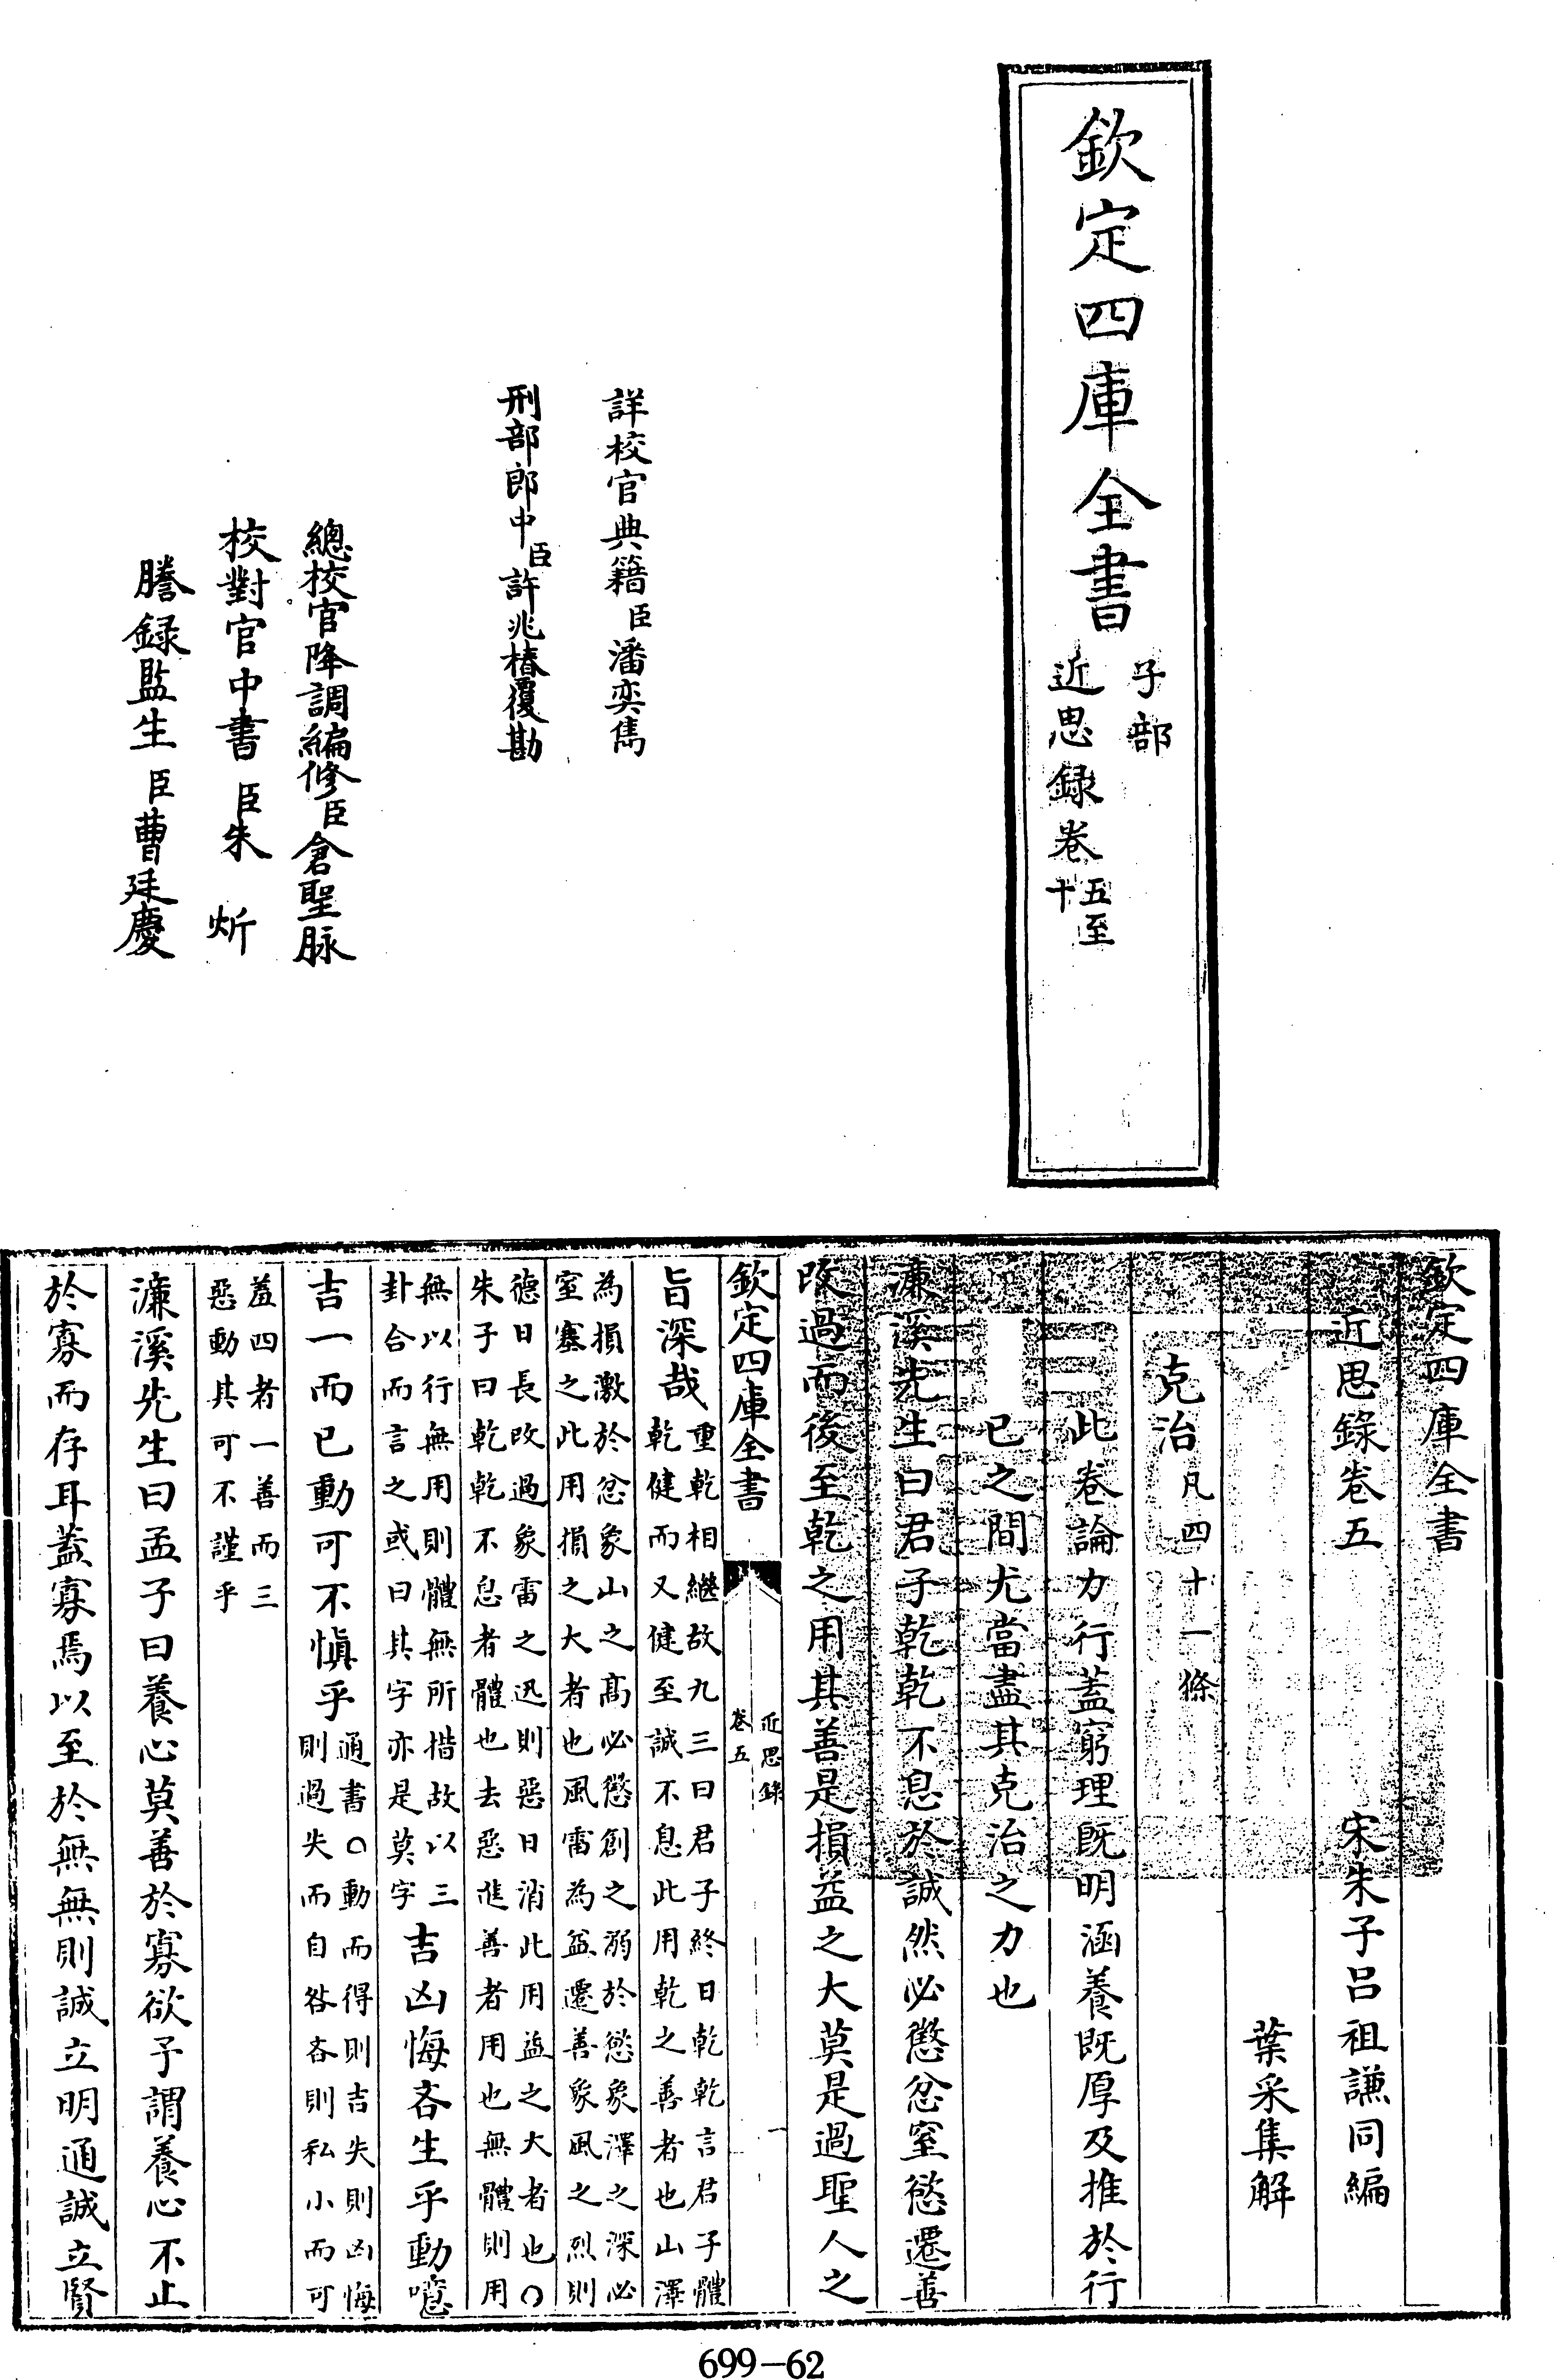 欽定四庫全書
子部
近思録卷
五至
十
詳校官典籍臣潘奕雋
刑部郎中臣許兆椿覆勘
總校官降調編修臣倉聖脉
校對官中書臣朱炘
謄録監生臣曹廷慶
欽定四庫全書
近思錄卷五
宋朱子呂祖謙同編
葉采集解
克治凡四十一條
此卷論力行蓋窮理既明涵養既厚及推於行
已之間尤當盡其克治之力也
濓溪先生曰君子乾乾不息於誠然必懲忿窒慾遷善
改過而後至乾之用其善是損益之大莫是過聖人之
欽定四庫全書
近思錄
卷五
一
旨深哉
重乾相繼故九三曰君子終日乾乾言君子體
乾健而又健至誠不息此用乾之善者也山澤
為損激於忿象山之髙必懲創之溺於慾象澤之深必
窒塞之此用損之大者也風雷為益遷善象風之烈則
德日長改過象雷之迅則惡日消此用益之大者也○
朱子曰乾乾不息者體也去惡進善者用也無體則用
無以行無用則體無所措故以三
卦合而言之或曰其字亦是莫字
吉凶悔吝生乎動噫
吉一而已動可不慎乎
通書○動而得則吉失則凶悔
則過失而自咎吝則私小而可
羞四者一善而三
惡動其可不謹乎
濓溪先生曰孟子曰養心莫善於寡欲予謂養心不止
於寡而存耳蓋寡焉以至於無無則誠立明通誠立賢
699-62